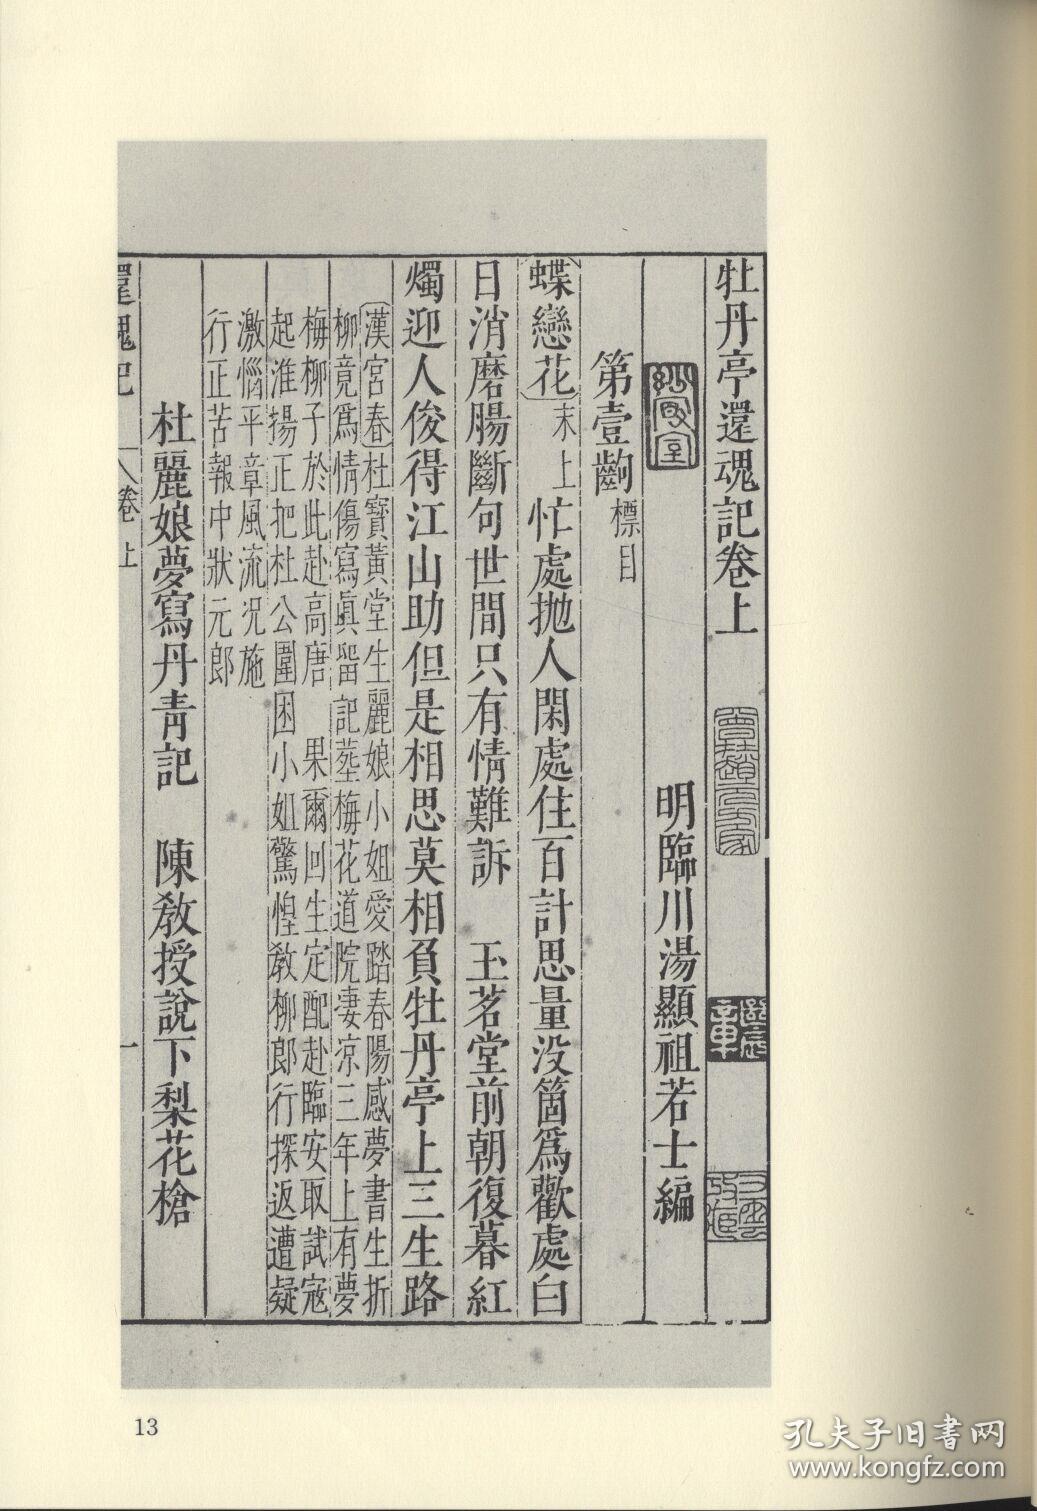 牡丹亭還魂記卷上
明臨川湯顯祖若士編
第壹齣 標目
蝶戀花 末上 忙處抛人閑處住百計思量没箇爲歡處白
日消磨腸斷句世間只有情難訴 玉茗堂前朝復暮紅
燭迎人俊得江山助但是相思莫相負牡丹亭上三生路
漢宮春 杜寶黃堂生麗娘小姐愛踏春陽感夢書生折
柳竟爲情傷寫眞留記葬梅花道院凄凉三年上有夢
梅柳子於此赴高唐 果爾回生定配赴臨安取試寇
起淮揚正把杜公圍困小姐驚惶敎柳郎行探返遭疑
激惱平章風流況施
行正苦報中狀元郎
杜麗娘夢寫丹青記 陳敎授說下梨花槍
還魂記 卷上 一
13
孔夫子旧書网
www.kongfz.com